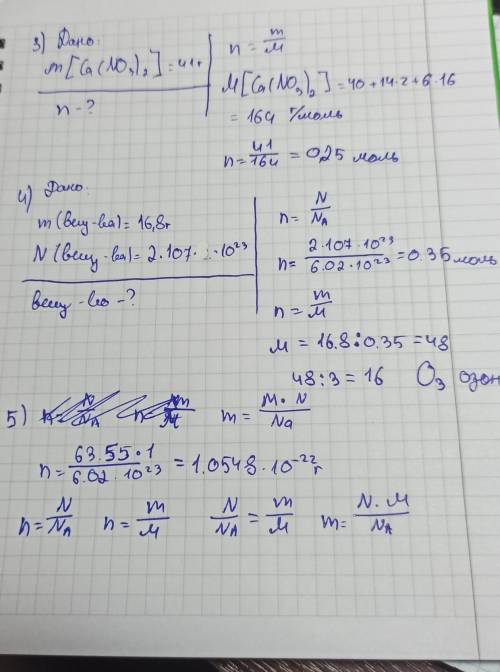 3) Дано:
m[Ca(NO₃)₂]=41г
n-?
n = m/M
M[Ca(NO₃)₂]=40+14·2+6·16
= 164 г/моль
n=41/164=0,25 моль
4) Дано:
m(вещ-ва)=16,8г
N(вещ-ва)=2.107·10²³
вещ-во-?
n= N/Nₐ
n= 2.107·10²³/6.02·10²³=0.35 моль
n= m/M
M = 16.8:0.35=48
48:3=16 O₃ озон
5) m= M·N/Na
n= 63.55·1/6.02·10²³=1.0548·10⁻²² г
n= N/Nₐ n= m/M N/Nₐ = m/M m= N·M/Nₐ